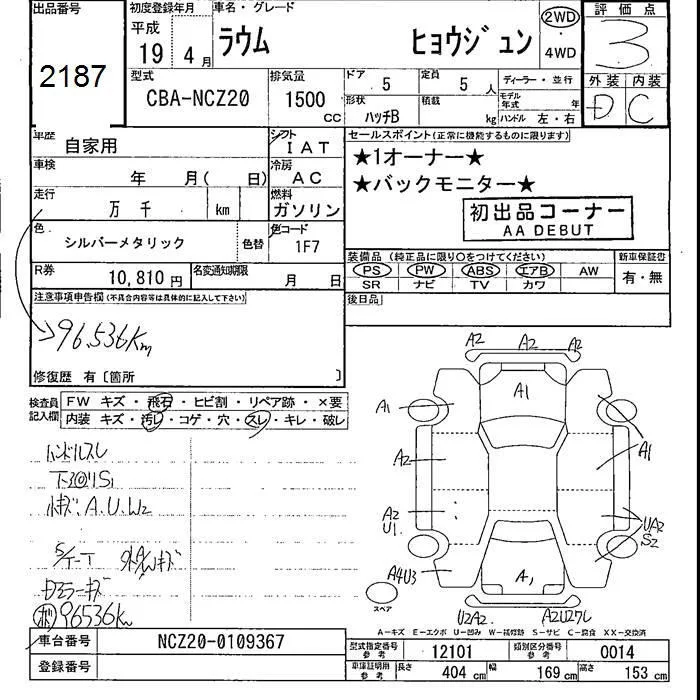 出品番号 初度登録年月 車名・グレード 2WD 評価点
2187 平成 19年 4月 ラウム ヒョウジュン 4WD 3
型式 排気量 ドア 5 定員 5人 ディーラー・並行 外装 内装
CBA-NCZ20 1500 CC 形状 ハッチB 積載 kg モデル年式 年 ハンドル 左・右 D C
車歴 自家用 シフト IAT セールスポイント(正常に機能するものに限ります)
車検 年 月( 日) 冷房 AC ★1オーナー★
走行 万 千 km 燃料 ガソリン ★バックモニター★
色 シルバーメタリック 色替 色コード 1F7 初出品コーナー
AA DEBUT
R券 10,810円 名変通知期限 月 日 装備品(純正品に限り○をつけてください) 新車保証書
PS PW ABS エアB AW 有・無
SR ナビ TV カワ
注意事項申告欄(不具合内容等は具体的に記入して下さい) 後日品
96,536Km
修復歴 有〔箇所 〕
検査員記入欄 FW キズ・飛石・ヒビ割・リペア跡・×要
内装 キズ・汚レ・コゲ・穴・スレ・キレ・破レ
A2 A2 A2
A1 A1
ハンドルスレ A1
A2
A.U.W2 A2 U1 UA2 S2
A4U3 A1
96536Km スペア U2A2
A-キズ E-エクボ U-凹み W-補修跡 S-サビ C-腐食 XX-交換済
車台番号 NCZ20-0109367 型式指定番号 参考 12101 類別区分番号 参考 0014
登録番号 車庫証明用 参考 長さ 404 cm 幅 169 cm 高さ 153 cm